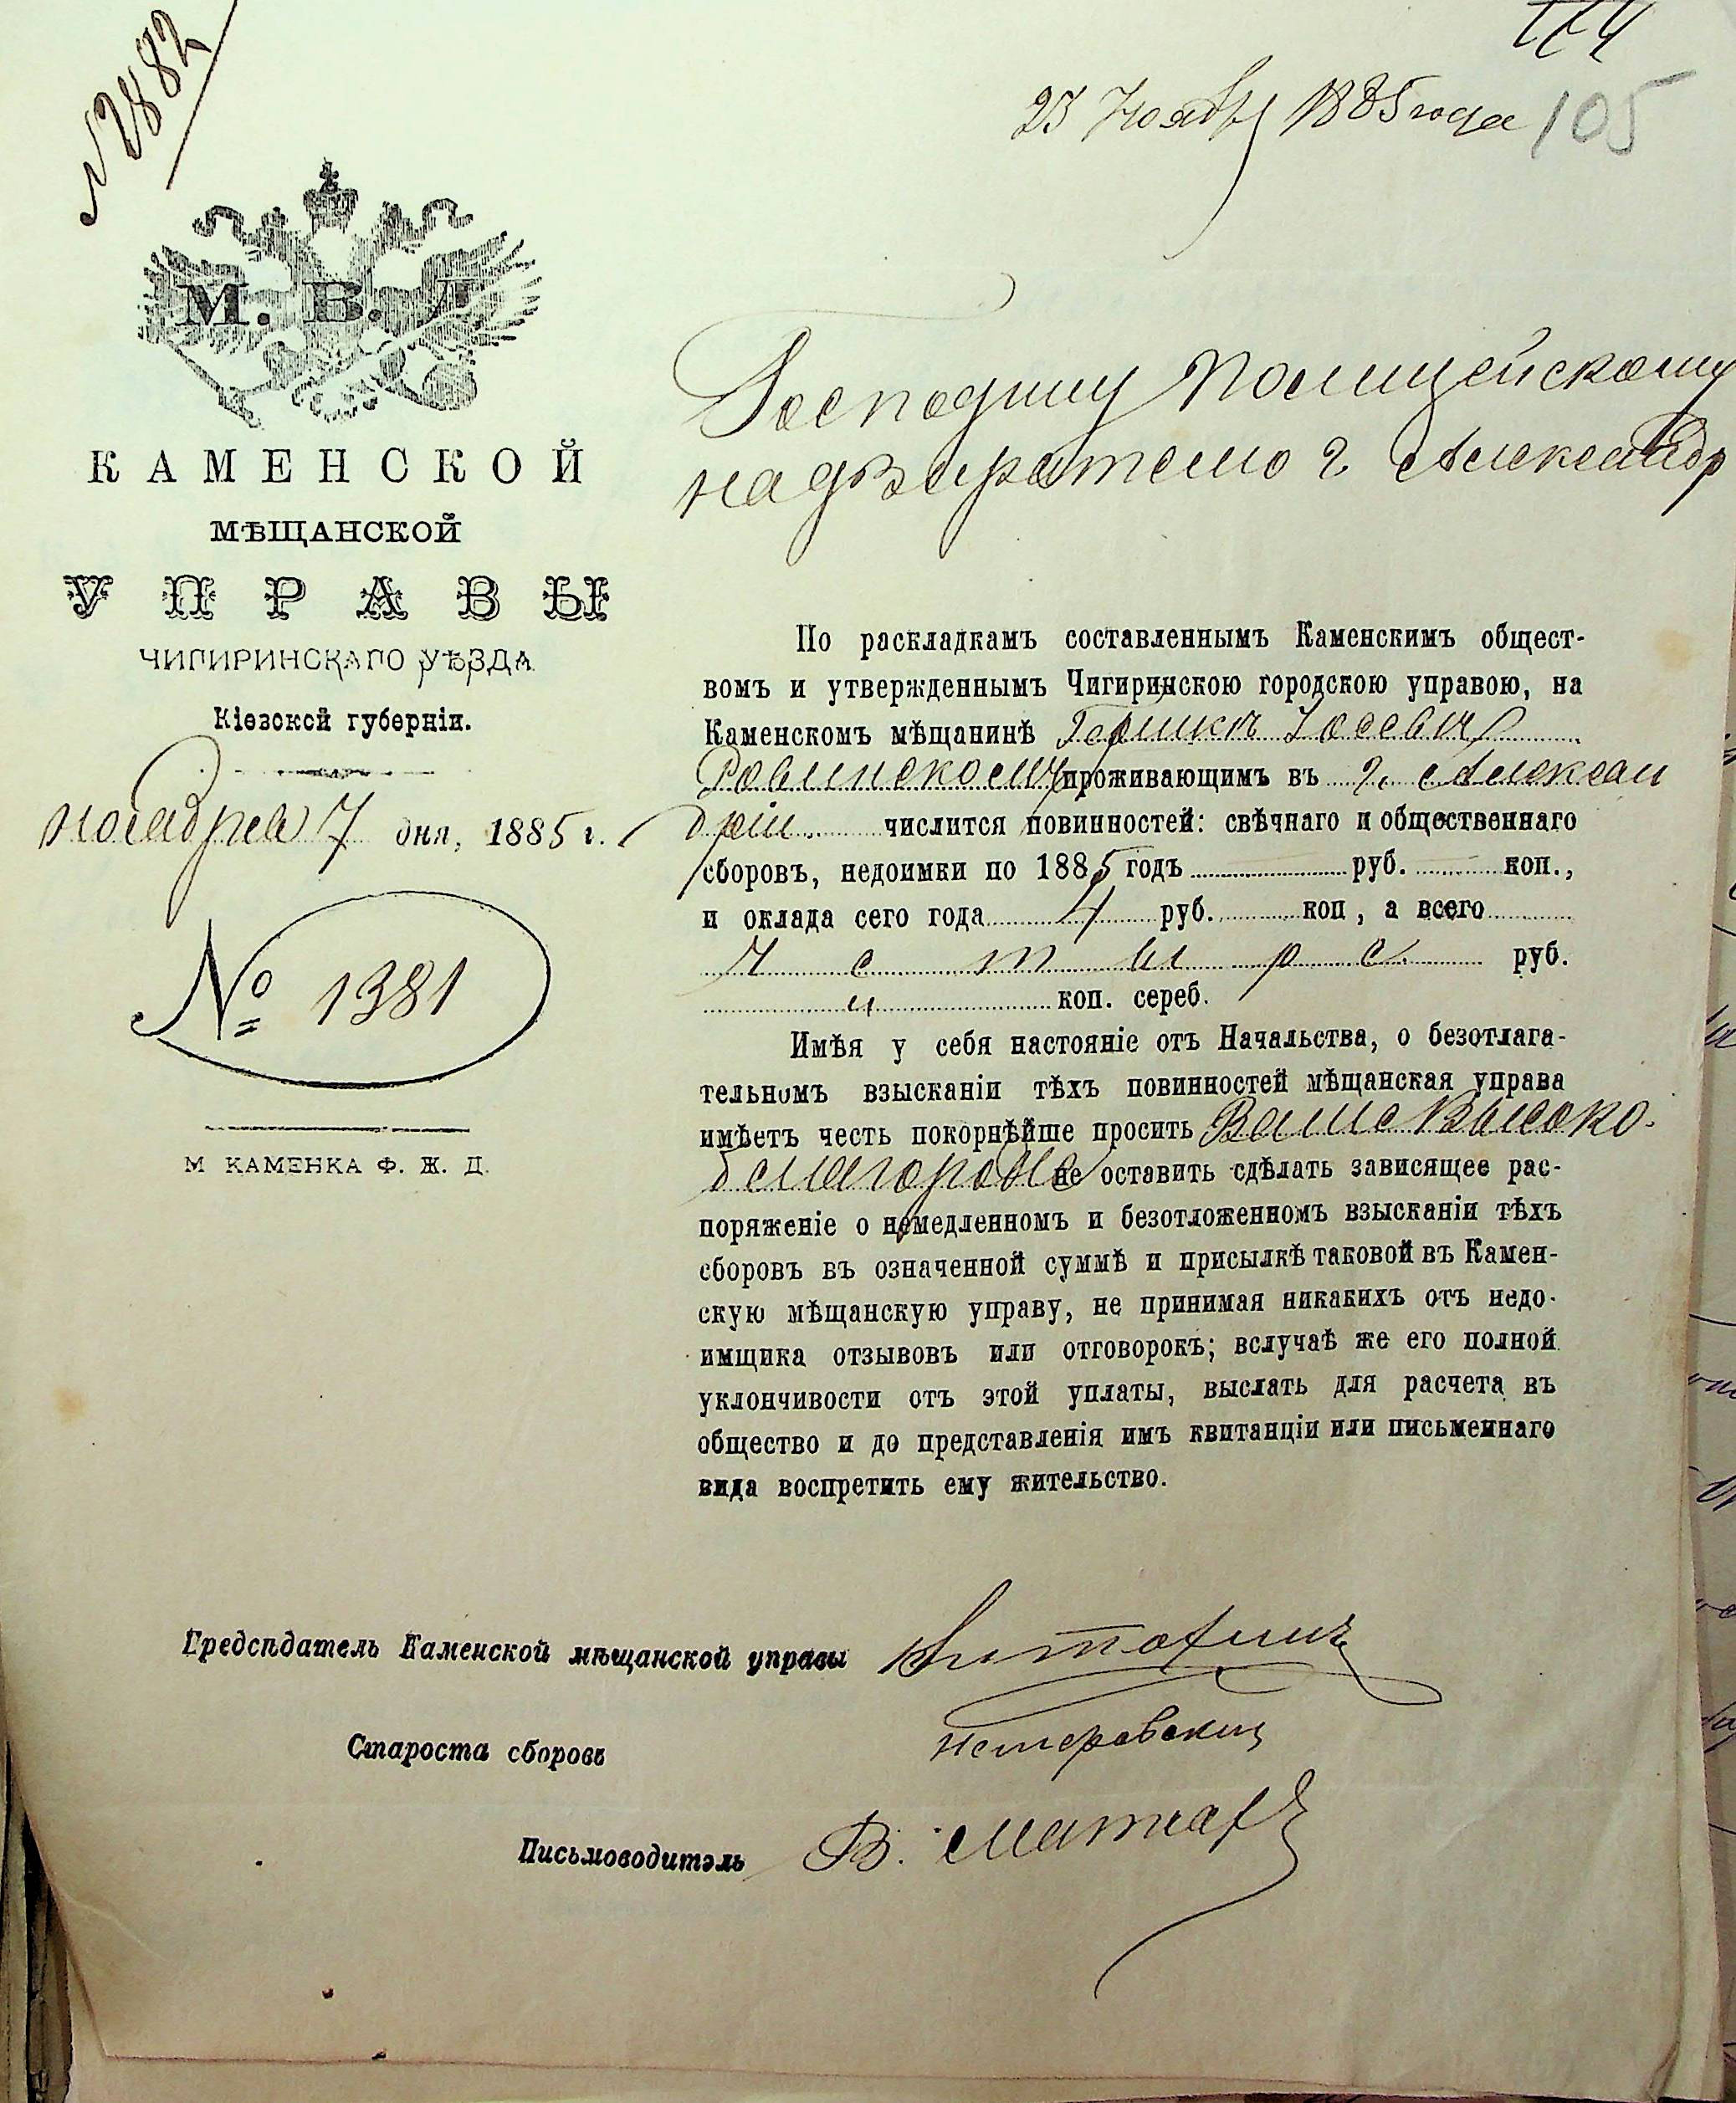 № 2882
23 Ноября 1885 года
105
М. В. Д.
КАМЕНСКОЙ
МѢЩАНСКОЙ
УПРАВЫ
ЧИГИРИНСКАГО УѢЗДА
Кіевской губерніи.
ноября 7 дня, 1885 г.
№ 1381
М КАМЕНКА Ф. Ж. Д.
Господину Полицейскому
надзирателю г. Александр
По раскладкамъ составленнымъ Каменскимъ общест-
вомъ и утвержденнымъ Чигиринскою городскою управою, на
Каменскомъ мѣщанинѣ Гершкѣ Іосевич
Равинском проживающимъ въ г. Алексан
дріи числится повинностей: свѣчнаго и общественнаго
сборовъ, недоимки по 1885 годъ руб. коп.,
и оклада сего года 4 руб. коп, а всего
четыре руб.
и коп. сереб.
Имѣя у себя настояніе отъ Начальства, о безотлага-
тельномъ взысканіи тѣхъ повинностей мѣщанская управа
имѣетъ честь покорнѣйше просить Ваше Высоко-
благородіе не оставить сдѣлать зависящее рас-
поряженіе о немедленномъ и безотложенномъ взысканіи тѣхъ
сборовъ въ означенной суммѣ и присылкѣ таковой въ Камен-
скую мѣщанскую управу, не принимая никакихъ отъ недо-
имщика отзывовъ или отговорокъ; вслучаѣ же его полной
уклончивости отъ этой уплаты, выслать для расчета въ
общество и до представленія имъ квитанціи или письменнаго
вида воспретить ему жительство.
Предсѣдатель Каменской мѣщанской управы
Староста сборовъ
Письмоводитель В.